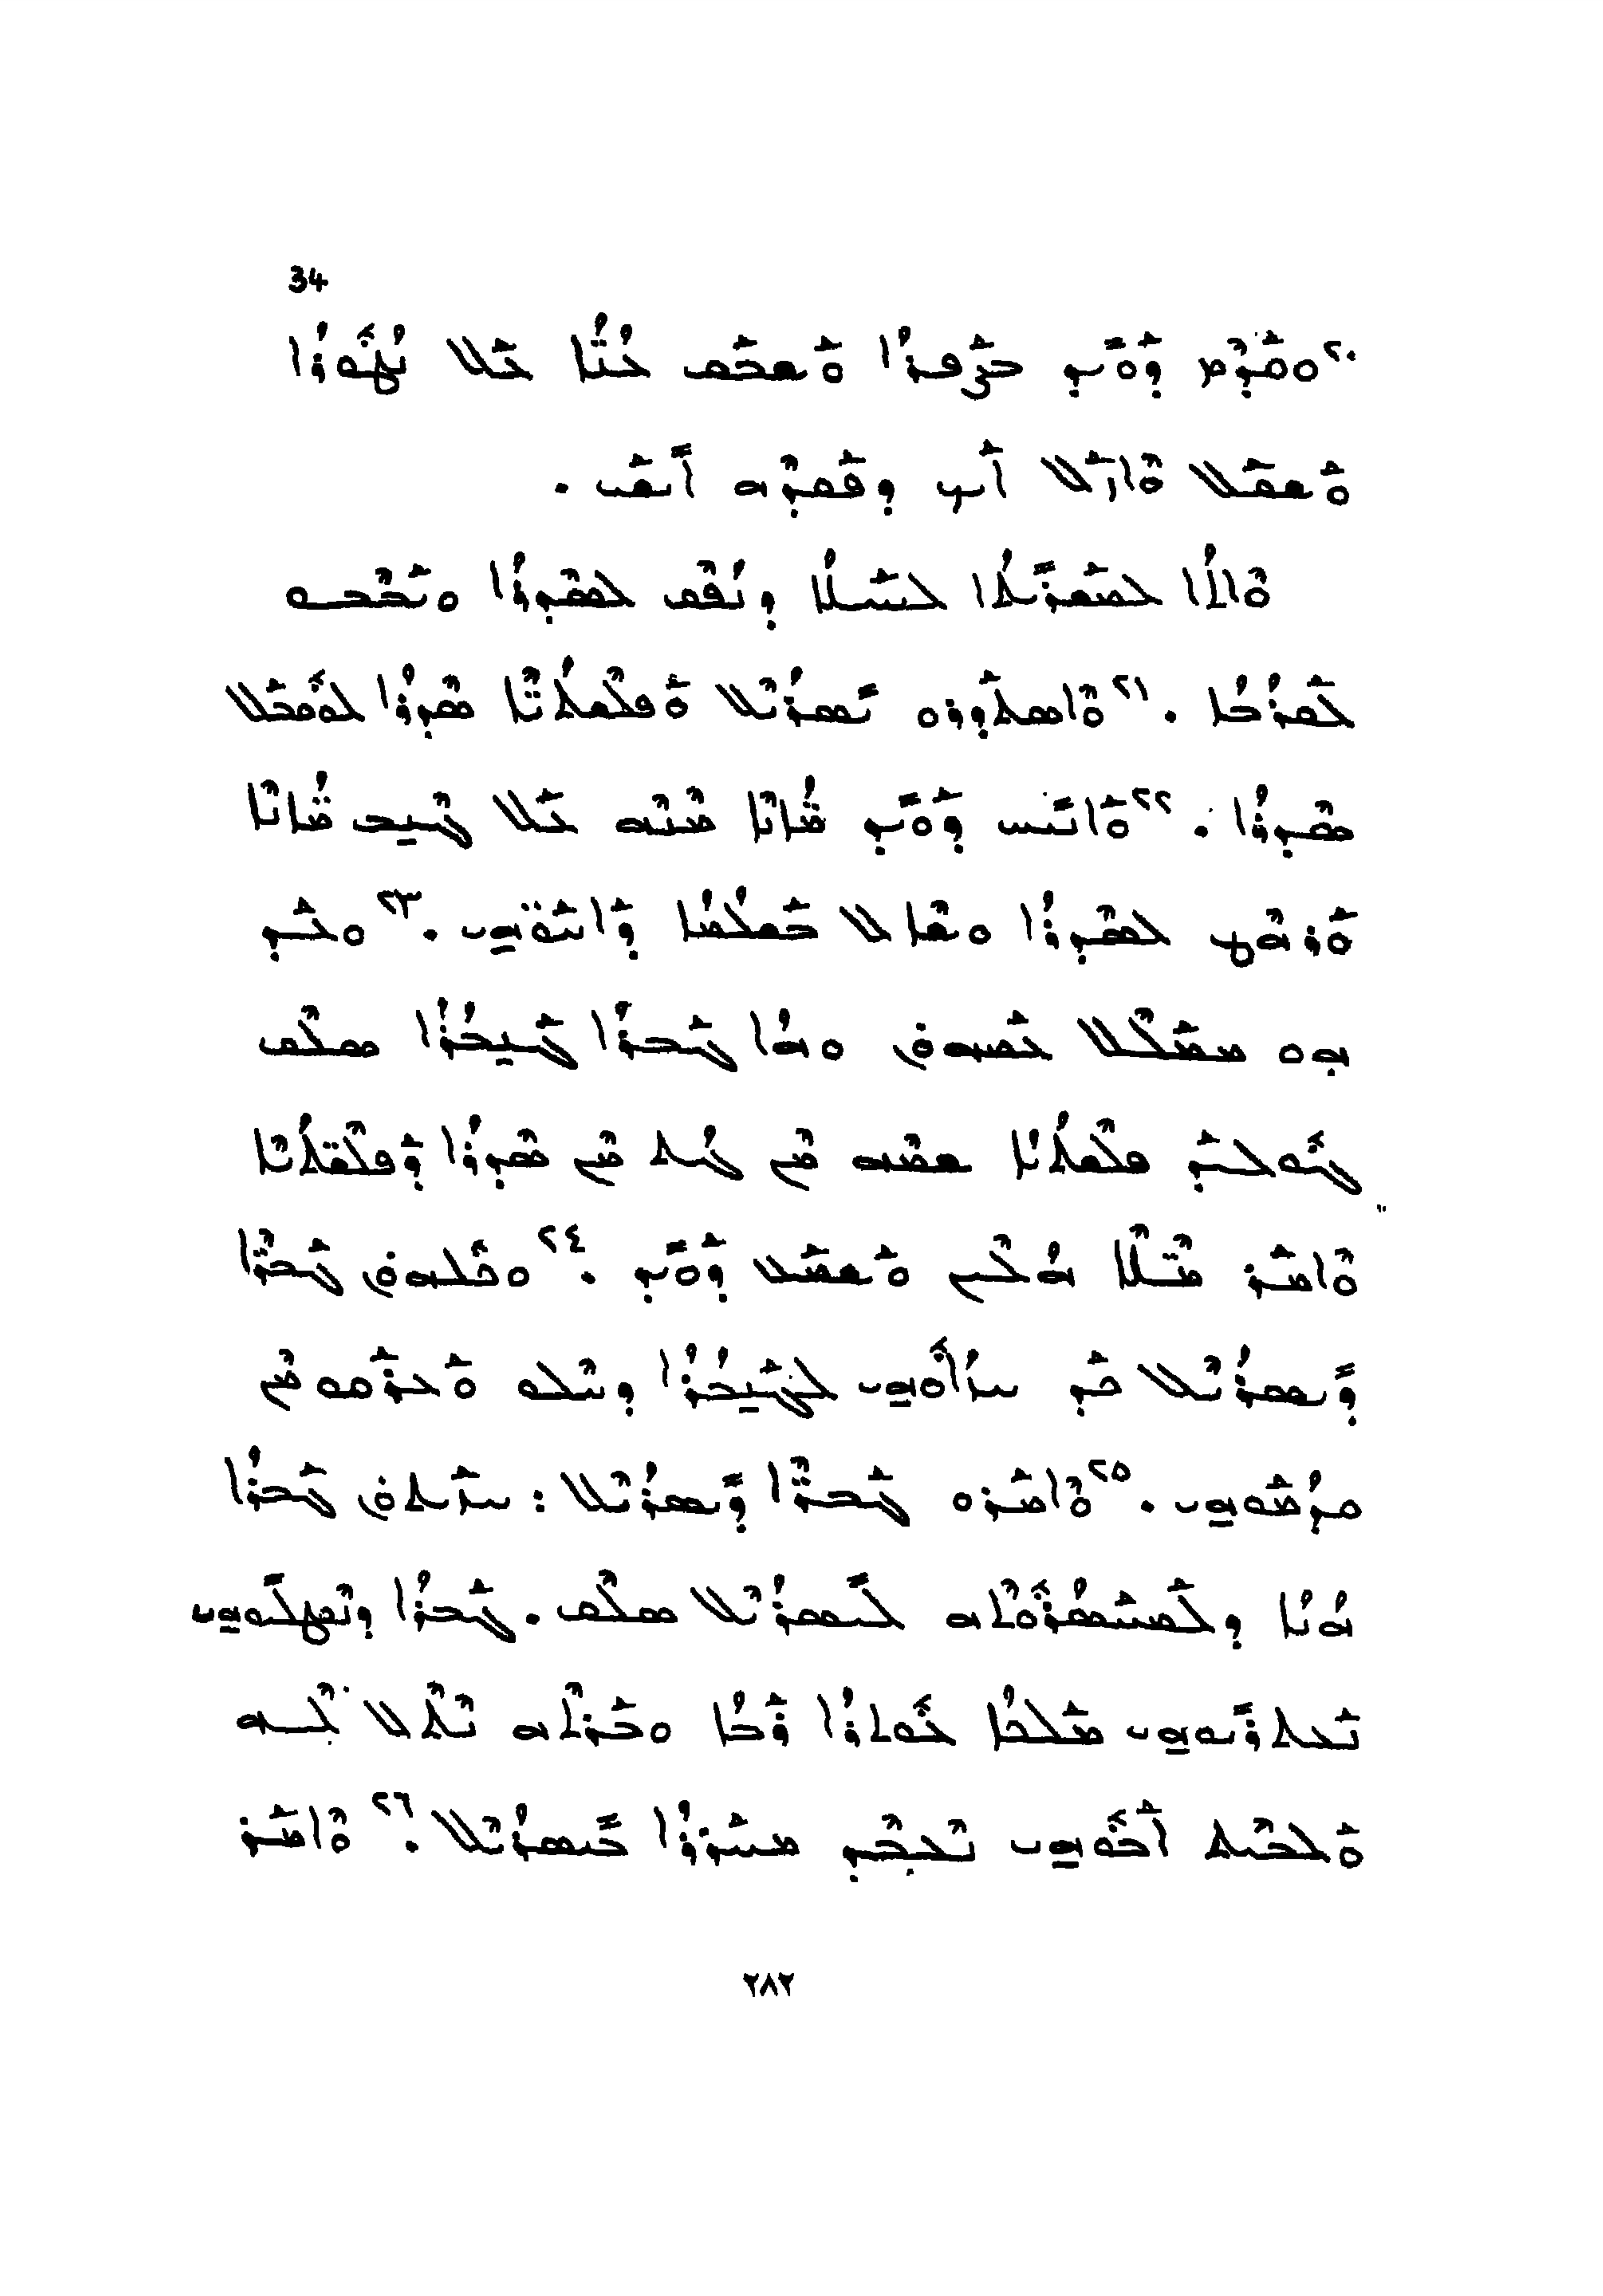 34
٢٠ܘܩܕܡ ܕܘܝܕ ܒܨܦܪܐ ܘܫܒܩ ܥܢ̈ܐ ܥܠ ܢܛܘܪܐ
ܘܫܩܠ ܘܐܙܠ ܐܝܟ ܕܦܩܕܗ ܐܝܫܝ .
ܘܐܬܐ ܠܡܫܪܝܬܐ ܠܚܝܠܐ ܕܢܦܩ ܠܣܕܪܐ ܘܝܒܒܘ
ܠܩܪܒܐ . ٢١ܘܐܣܬܕܪܘ ܝܣܪܝܠ ܘܦܠܫܬܝ̈ܐ ܣܕܪܐ ܠܘܩܒܠ
ܣܕܪܐ . ٢٢ܘܐܢܝܚ ܕܘܝܕ ܡܐ̈ܢܐ ܡܢܗ ܥܠ ܓܢܒ ܡܐ̈ܢܐ
ܘܪܗܛ ܠܣܕܪܐ ܘܫܐܠ ܒܫܠܡܐ ܕܐܚ̈ܘܗܝ . ٢٣ܘܥܕ
ܗܘ ܡܡܠܠ ܥܡܗܘܢ ܘܗܐ ܓܒܪܐ ܓܢܒܪܐ ܣܠܩ
ܓܘܠܝܕ ܦܠܫܬܝܐ ܫܡܗ ܡܢ ܓܬ ܡܢ ܣܕܪܐ ܕܦܠܫ̈ܬܝܐ
ܘܐܡܪ ܡ̈ܠܐ ܗܠܝܢ ܘܫܡܥ ܕܘܝܕ . ٢٤ܘܟܠܗܘܢ ܓܒܪ̈ܐ
ܕܝܣܪܝܠ ܟܕ ܚܙܐܘܗܝ ܠܓܢܒܪܐ ܕܚܠܘ ܘܥܪܩܘ ܡܢ
ܩܕܡܘܗܝ . ٢٥ܘܐܡܪܘ ܓܒܪ̈ܐ ܕܝܣܪܝܠ : ܚܙܝܬܘܢ ܓܒܪܐ
ܗܢܐ ܕܠܡܚܣܪܘܬܗ ܠܝܣܪܝܠ ܣܠܩ . ܓܒܪܐ ܕܢܩܛܠܝܘܗܝ
ܢܥܬܪܝܘܗܝ ܡܠܟܐ ܥܘܬܪܐ ܪܒܐ ܘܒܪܬܗ ܢܬܠ ܠܗ
ܘܠܒܝܬ ܐܒܘܗܝ ܢܥܒܕ ܡܚܪܪܐ ܒܝܣܪܝܠ . ٢٦ܘܐܡܪ
٢٨٢